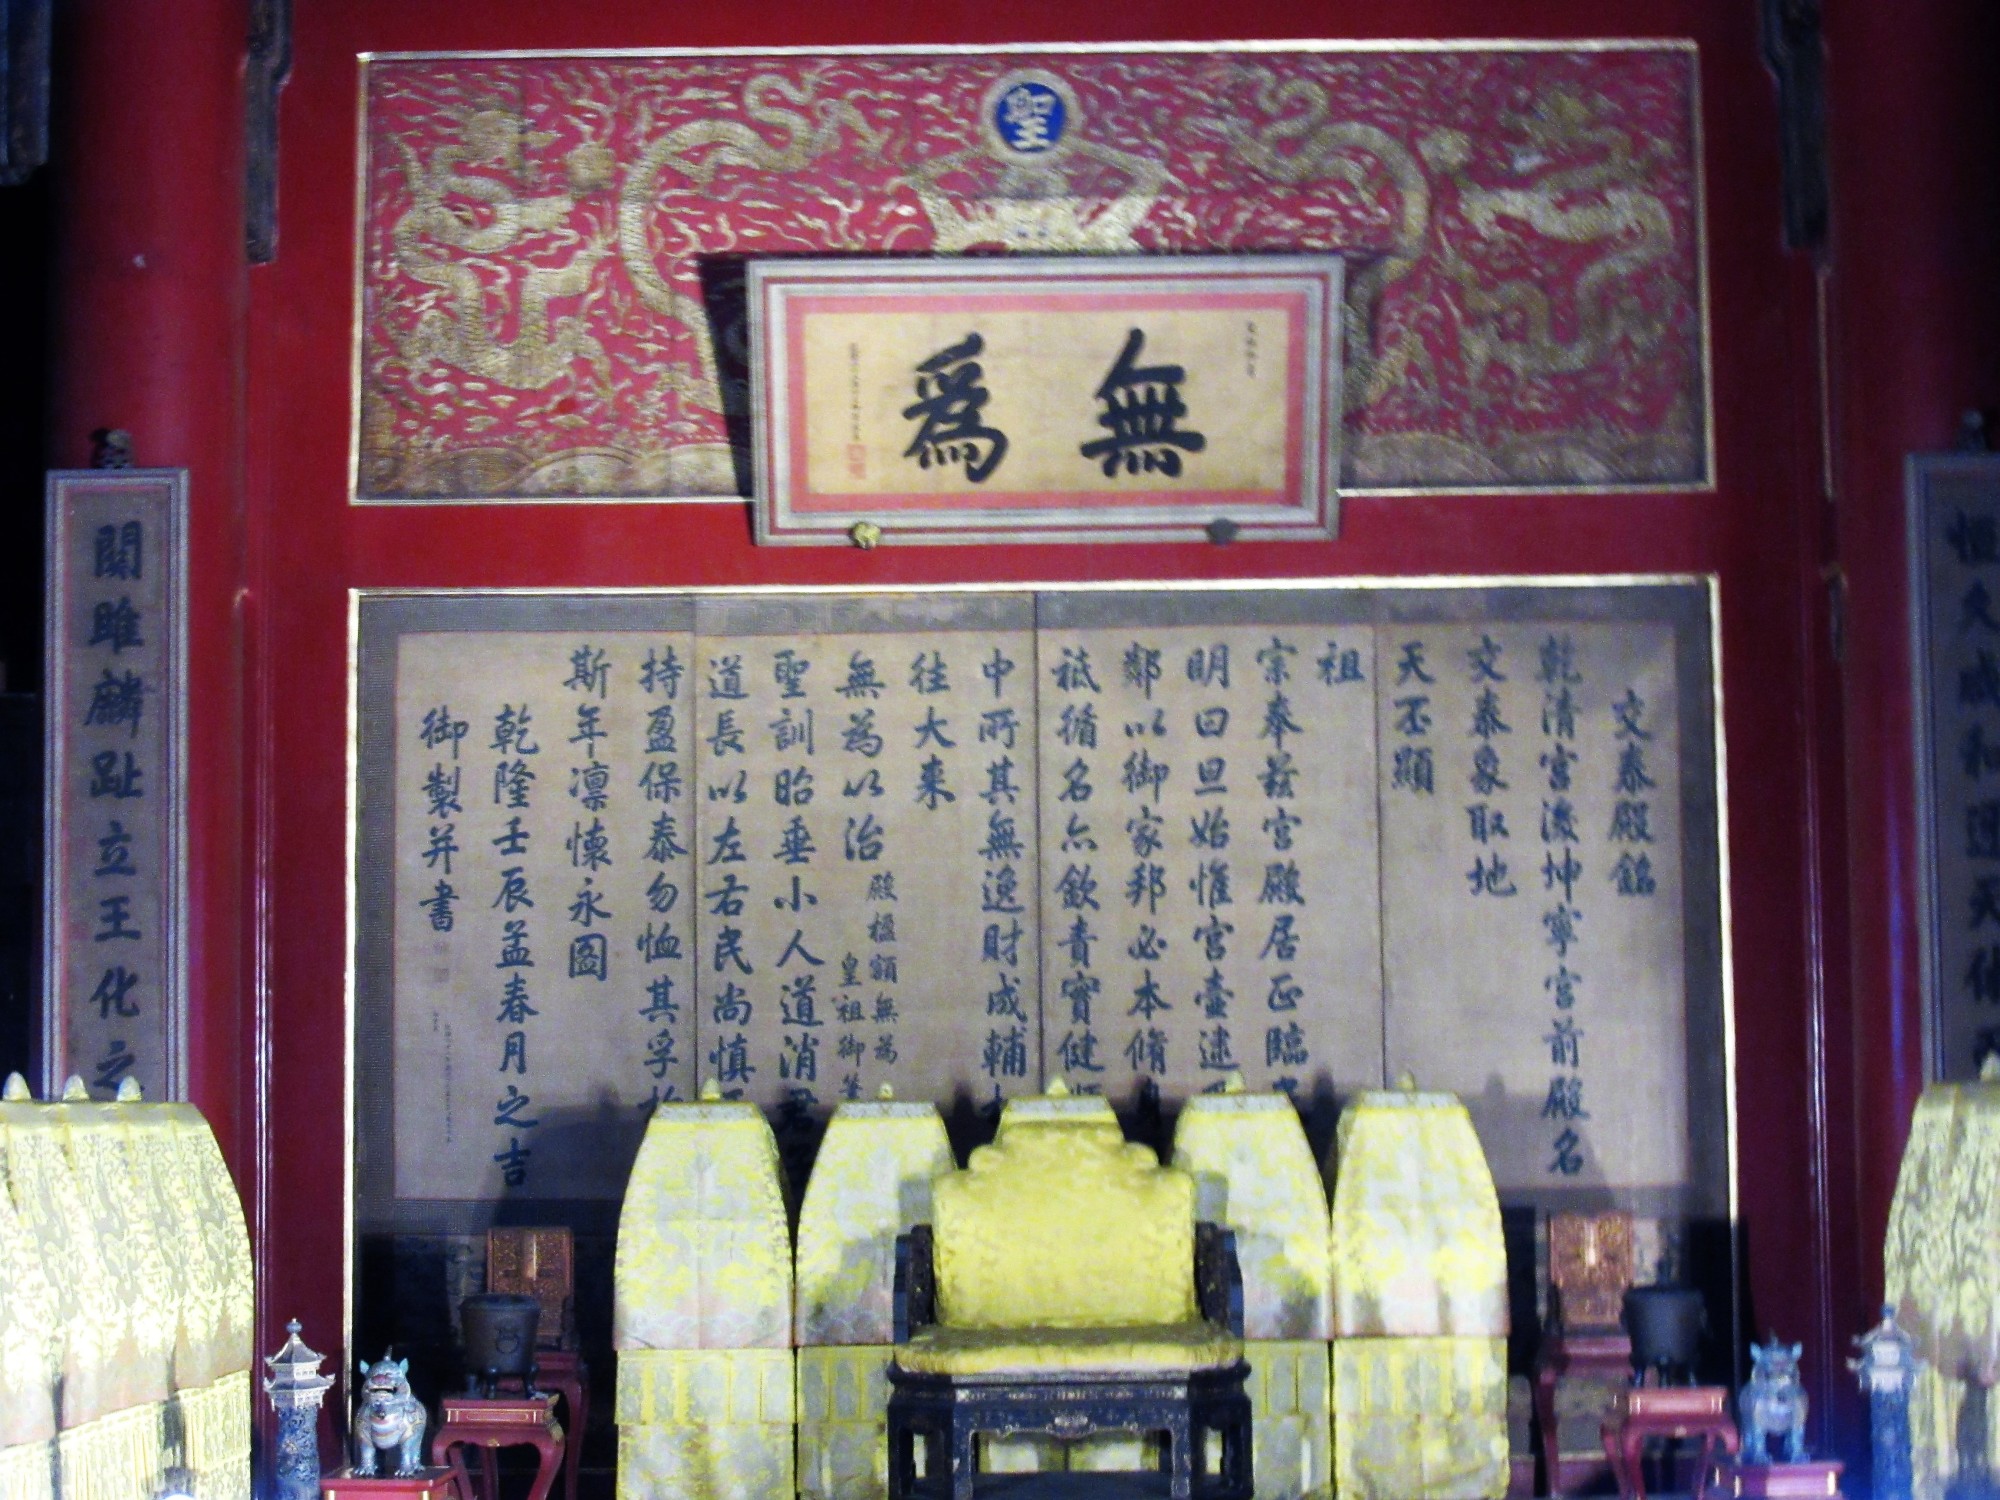 聖
無爲
交泰殿銘
乾清宮後坤寧宮前殿名
交泰象取地
天丕顯
祖
宗奉茲宮殿居正臨
明曰旦始惟宮壼逑
鄰以御家邦必本脩身
祗循名亦欽責實健順
中所其無逸財成輔
往大来
無為以治
殿楹額無為
皇祖御筆
聖訓昭垂小人道消君
道長以左右民尚慎
持盈保泰勿恤其孚
斯年凛懷永圖
乾隆壬辰孟春月之吉
御製并書
恒久咸和迓天休
關雎麟趾立王化之